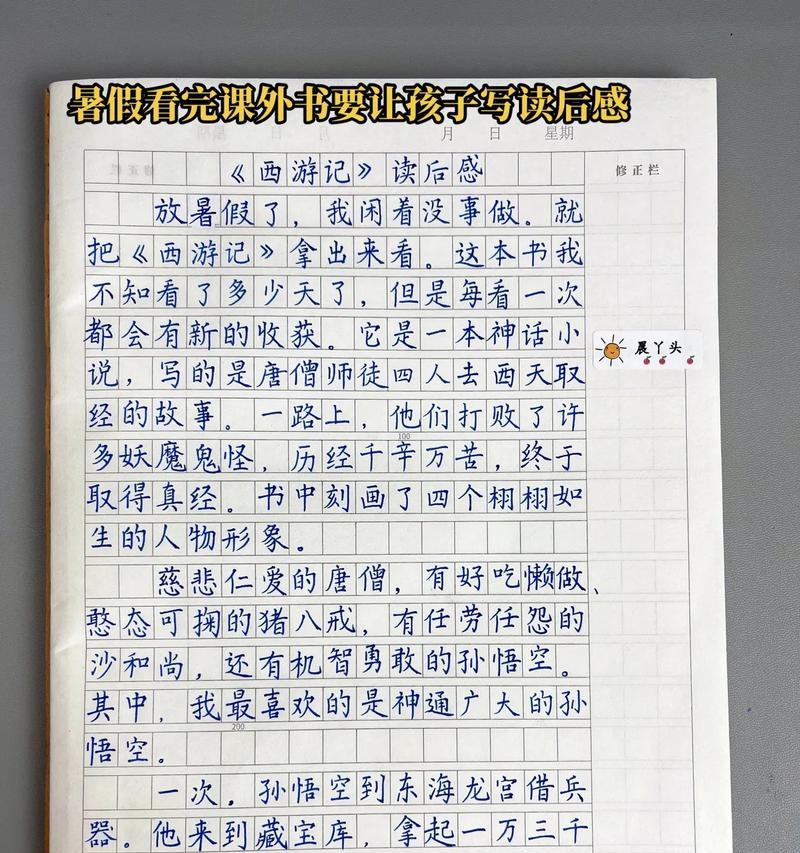 暑假看完课外书要让孩子写读后感
月 日 星期
《西游记》读后感
修正栏
放暑假了，我闲着没事做。就
把《西游记》拿出来看。这本书我
不知看了多少天了，但是每看一次
都会有新的收获。它是一本神话小
晨丫头
说，写的是唐僧师徒四人去西天取
经的故事。一路上，他们打败了许
100
多妖魔鬼怪，历经千辛万苦，终于
取得真经。书中刻画了四个栩栩如
生的人物形象。
慈悲仁爱的唐僧，有好吃懒做、
憨态可掬的猪八戒，有任劳任怨的
沙和尚，还有机智勇敢的孙悟空。
其中，我最喜欢的是神通广大的孙
200
悟空。
一次。孙悟空到东海龙宫借兵
器。他来到藏宝库，拿起一万三千